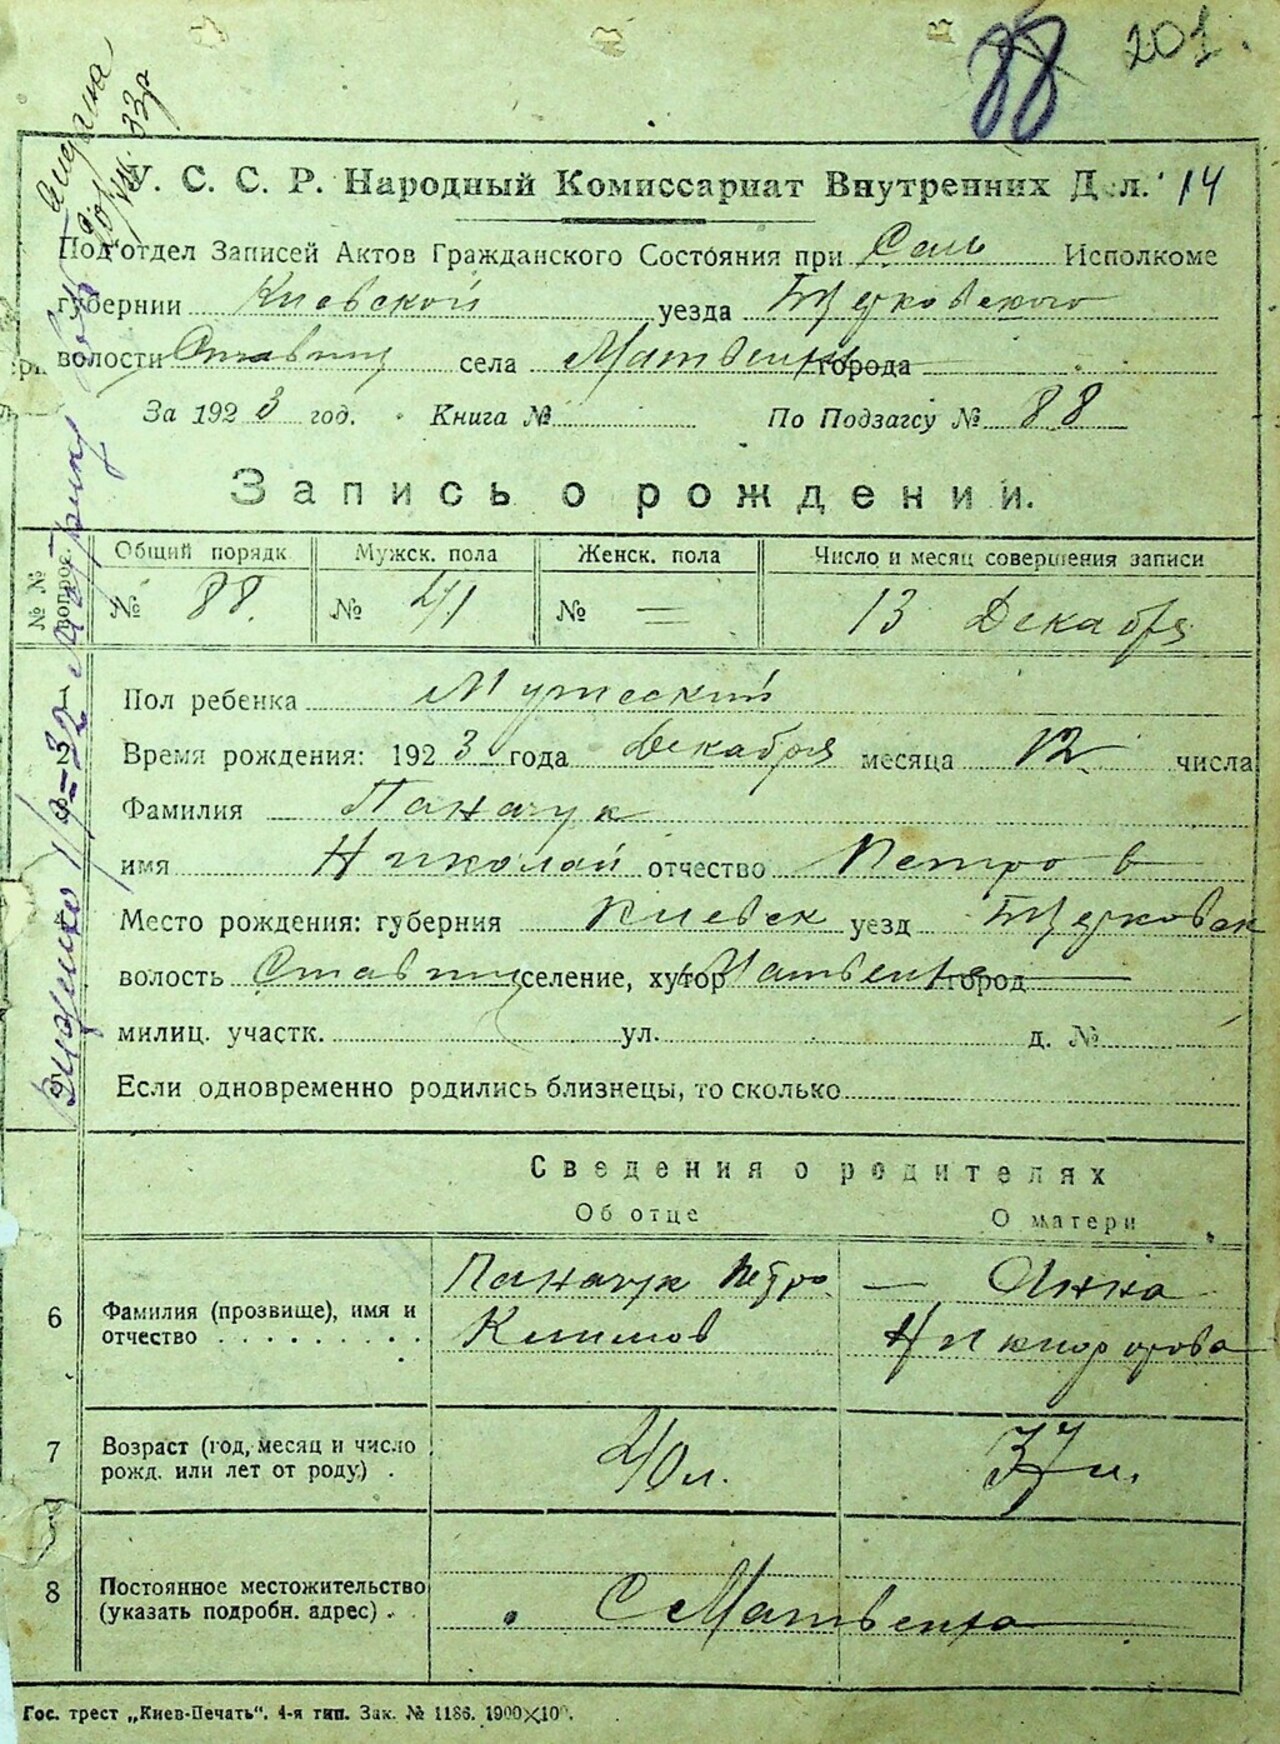 88 201.
У. С. С. Р. Народный Комиссариат Внутренних Дел. 14
Под'отдел Записей Актов Гражданского Состояния при Сель Исполкоме
губернии Киевской уезда Бцерковского
волости Ставищ села Матвеиха города
За 1923 год. Книга № По Подзагсу № 88
Запись о рождении.
№№ вопрос. Общий порядк Мужск. пола Женск. пола Число и месяц совершения записи
№ 88. № 41 № — 13 Декабря
Пол ребенка Мужеский
2 Время рождения: 1923 года Декабря месяца 12 числа
Фамилия Паначук
имя Николай отчество Петров
Место рождения: губерния Киевск уезд Бцерковск
волость Ставищ селение, хутор Матвеиха город
милиц. участк. ул. д. №
Если одновременно родились близнецы, то сколько
Сведения о родителях
Об отце О матери
6 Фамилия (прозвище), имя и Паначук Петро — Анна
отчество Климов Никифорова
7 Возраст (год, месяц и число 40 л. 37 л.
рожд. или лет от роду)
8 Постоянное местожительство
(указать подробн. адрес) С Матвеиха
Гос. трест „Киев-Печать“. 4-я тип. Зак. № 1186. 1900×100.